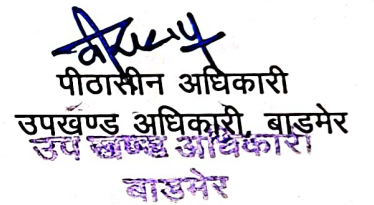 पीठासीन अधिकारी
उपखण्ड अधिकारी, बाडमेर
उप खण्ड अधिकारी
बाड़मेर